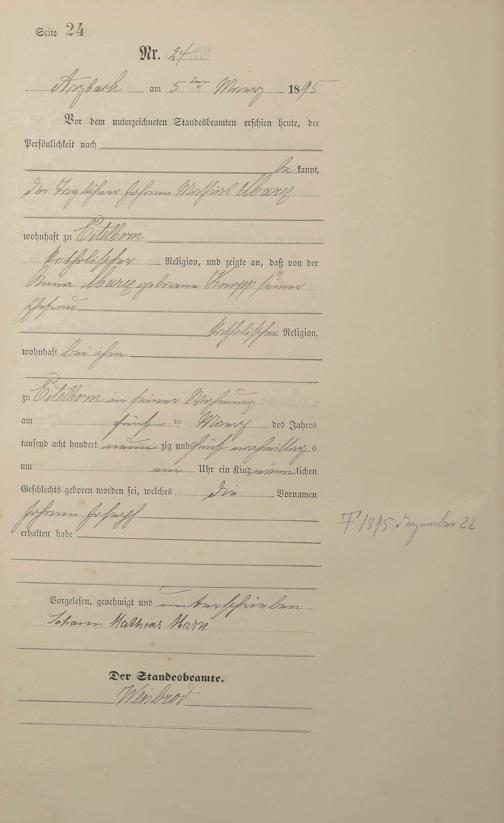 Seite 24
Nr. 24
Arzbach am 5ten Maerz 1895
Vor dem unterzeichneten Standesbeamten erschien heute, der
Persönlichkeit nach
bekannt,
der Taglöhner Johann Mathias Marx
wohnhaft zu Eitelborn
katholischer Religion, und zeigte an, daß von der
Anna Marx geborene Knopp, seiner
Ehefrau
katholischer Religion,
wohnhaft bei ihm
zu Eitelborn in seiner Wohnung
am fünften Maerz des Jahres
tausend acht hundert neunzig und fünf vormittags
um ein Uhr ein Kind männlichen
Geschlechts geboren worden sei, welches die Vornamen
Johann Joseph
erhalten habe
† 1895 Dezember 22
Vorgelesen, genehmigt und unterschrieben
Johann Mathias Marx
Der Standesbeamte.
Weisbrod